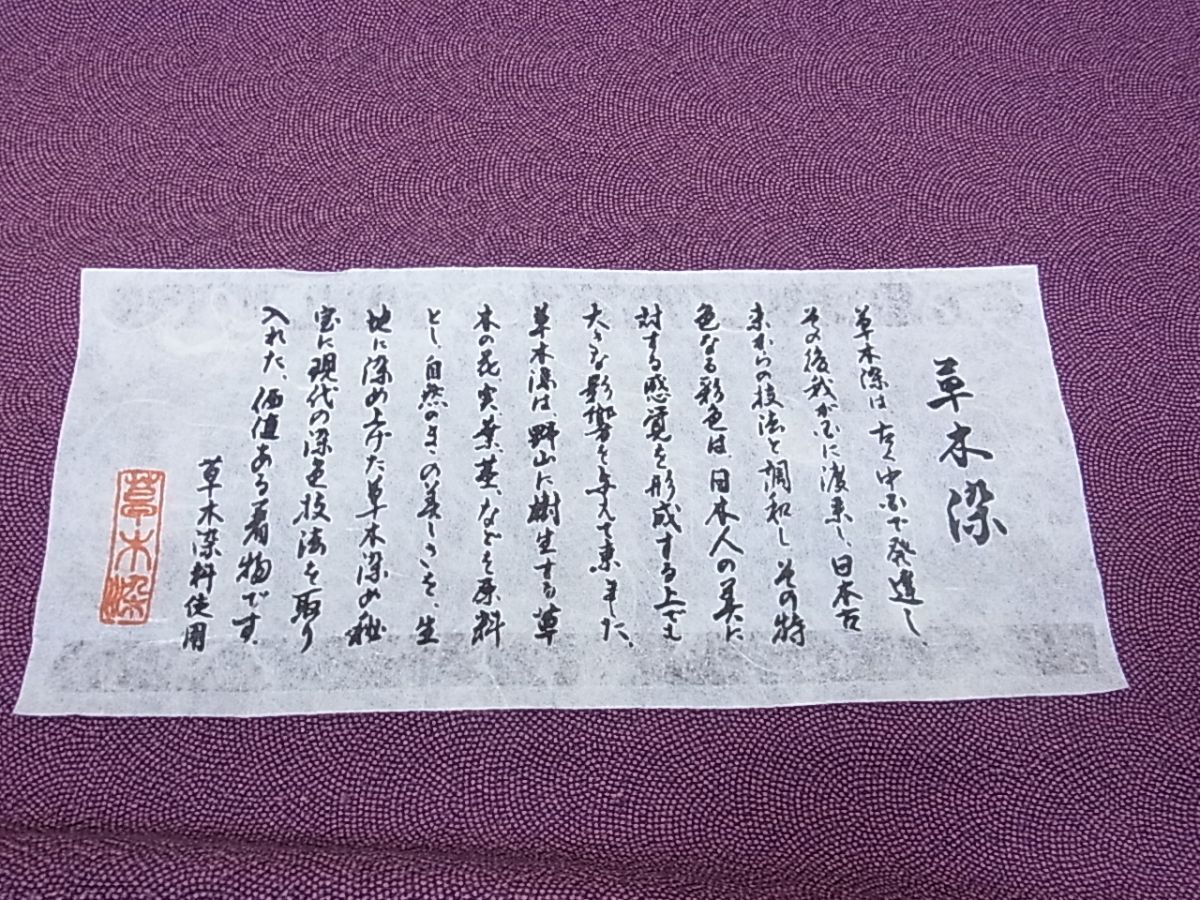 草木染
草木染は、古く中国で発達し、
その後我が国に渡来し、日本古
来からの技法と調和し、その特
色なる彩色は、日本人の美に
対する感覚を形成する上でも
大きな影響を与えて来ました。
草木染は、野山に樹生する草
木の花、実、葉、茎、などを原料
とし、自然のまゝの美しさを、生
地に染め上げた草木染の秘
宝に現代の染色技法を取り
入れた、価値ある着物です。
草木染料使用
草木染